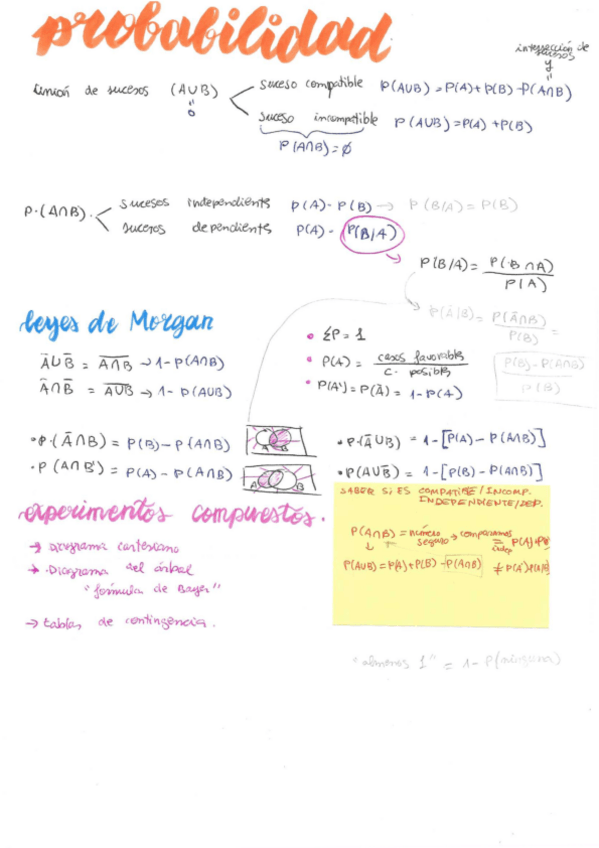 probabilidad.
intersección de
sucesos
y
"
Unión de sucesos (A∪B)
"
o
suceso compatible P(A∪B) = P(A) + P(B) - P(A∩B)
suceso incompatible P(A∪B) = P(A) + P(B)
P(A∩B) = ∅
P·(A∩B).
sucesos independients P(A) · P(B) → P(B/A) = P(B)
sucesos dependients P(A) · P(B/A)
P(B/A) = P(B∩A) / P(A)
P(Ā|B) = P(Ā∩B) / P(B) =
P(B) - P(A∩B) / P(B)
leyes de Morgan
Ā∪B̄ = \overline{A∩B} → 1 - P(A∩B)
Ā∩B̄ = \overline{A∪B} → 1 - P(A∪B)
• ΣP = 1
• P(A) = casos favorables / c. posibles
• P(A') = P(Ā) = 1 - P(A)
• P·(Ā∩B) = P(B) - P(A∩B)
A B
• P(A∩B̄) = P(A) - P(A∩B)
A B
• P·(Ā∪B) = 1 - [P(A) - P(A∩B)]
• P(A∪B̄) = 1 - [P(B) - P(A∩B)]
experimentos compuestos.
→ diagrama cartesiano
→ . Diagrama del árbol
"fórmula de Bayes"
→ tablas de contingencia.
SABER SI ES COMPATIBLE/INCOMP.
INDEPENDIENTE/DEP.
P(A∩B) = número
seguro → comparamos
= indep P(A)·P(B)
P(A∪B) = P(A) + P(B) - P(A∩B) ≠ P(A)·P(A/B)
"almenos 1" = 1 - P(ninguna)